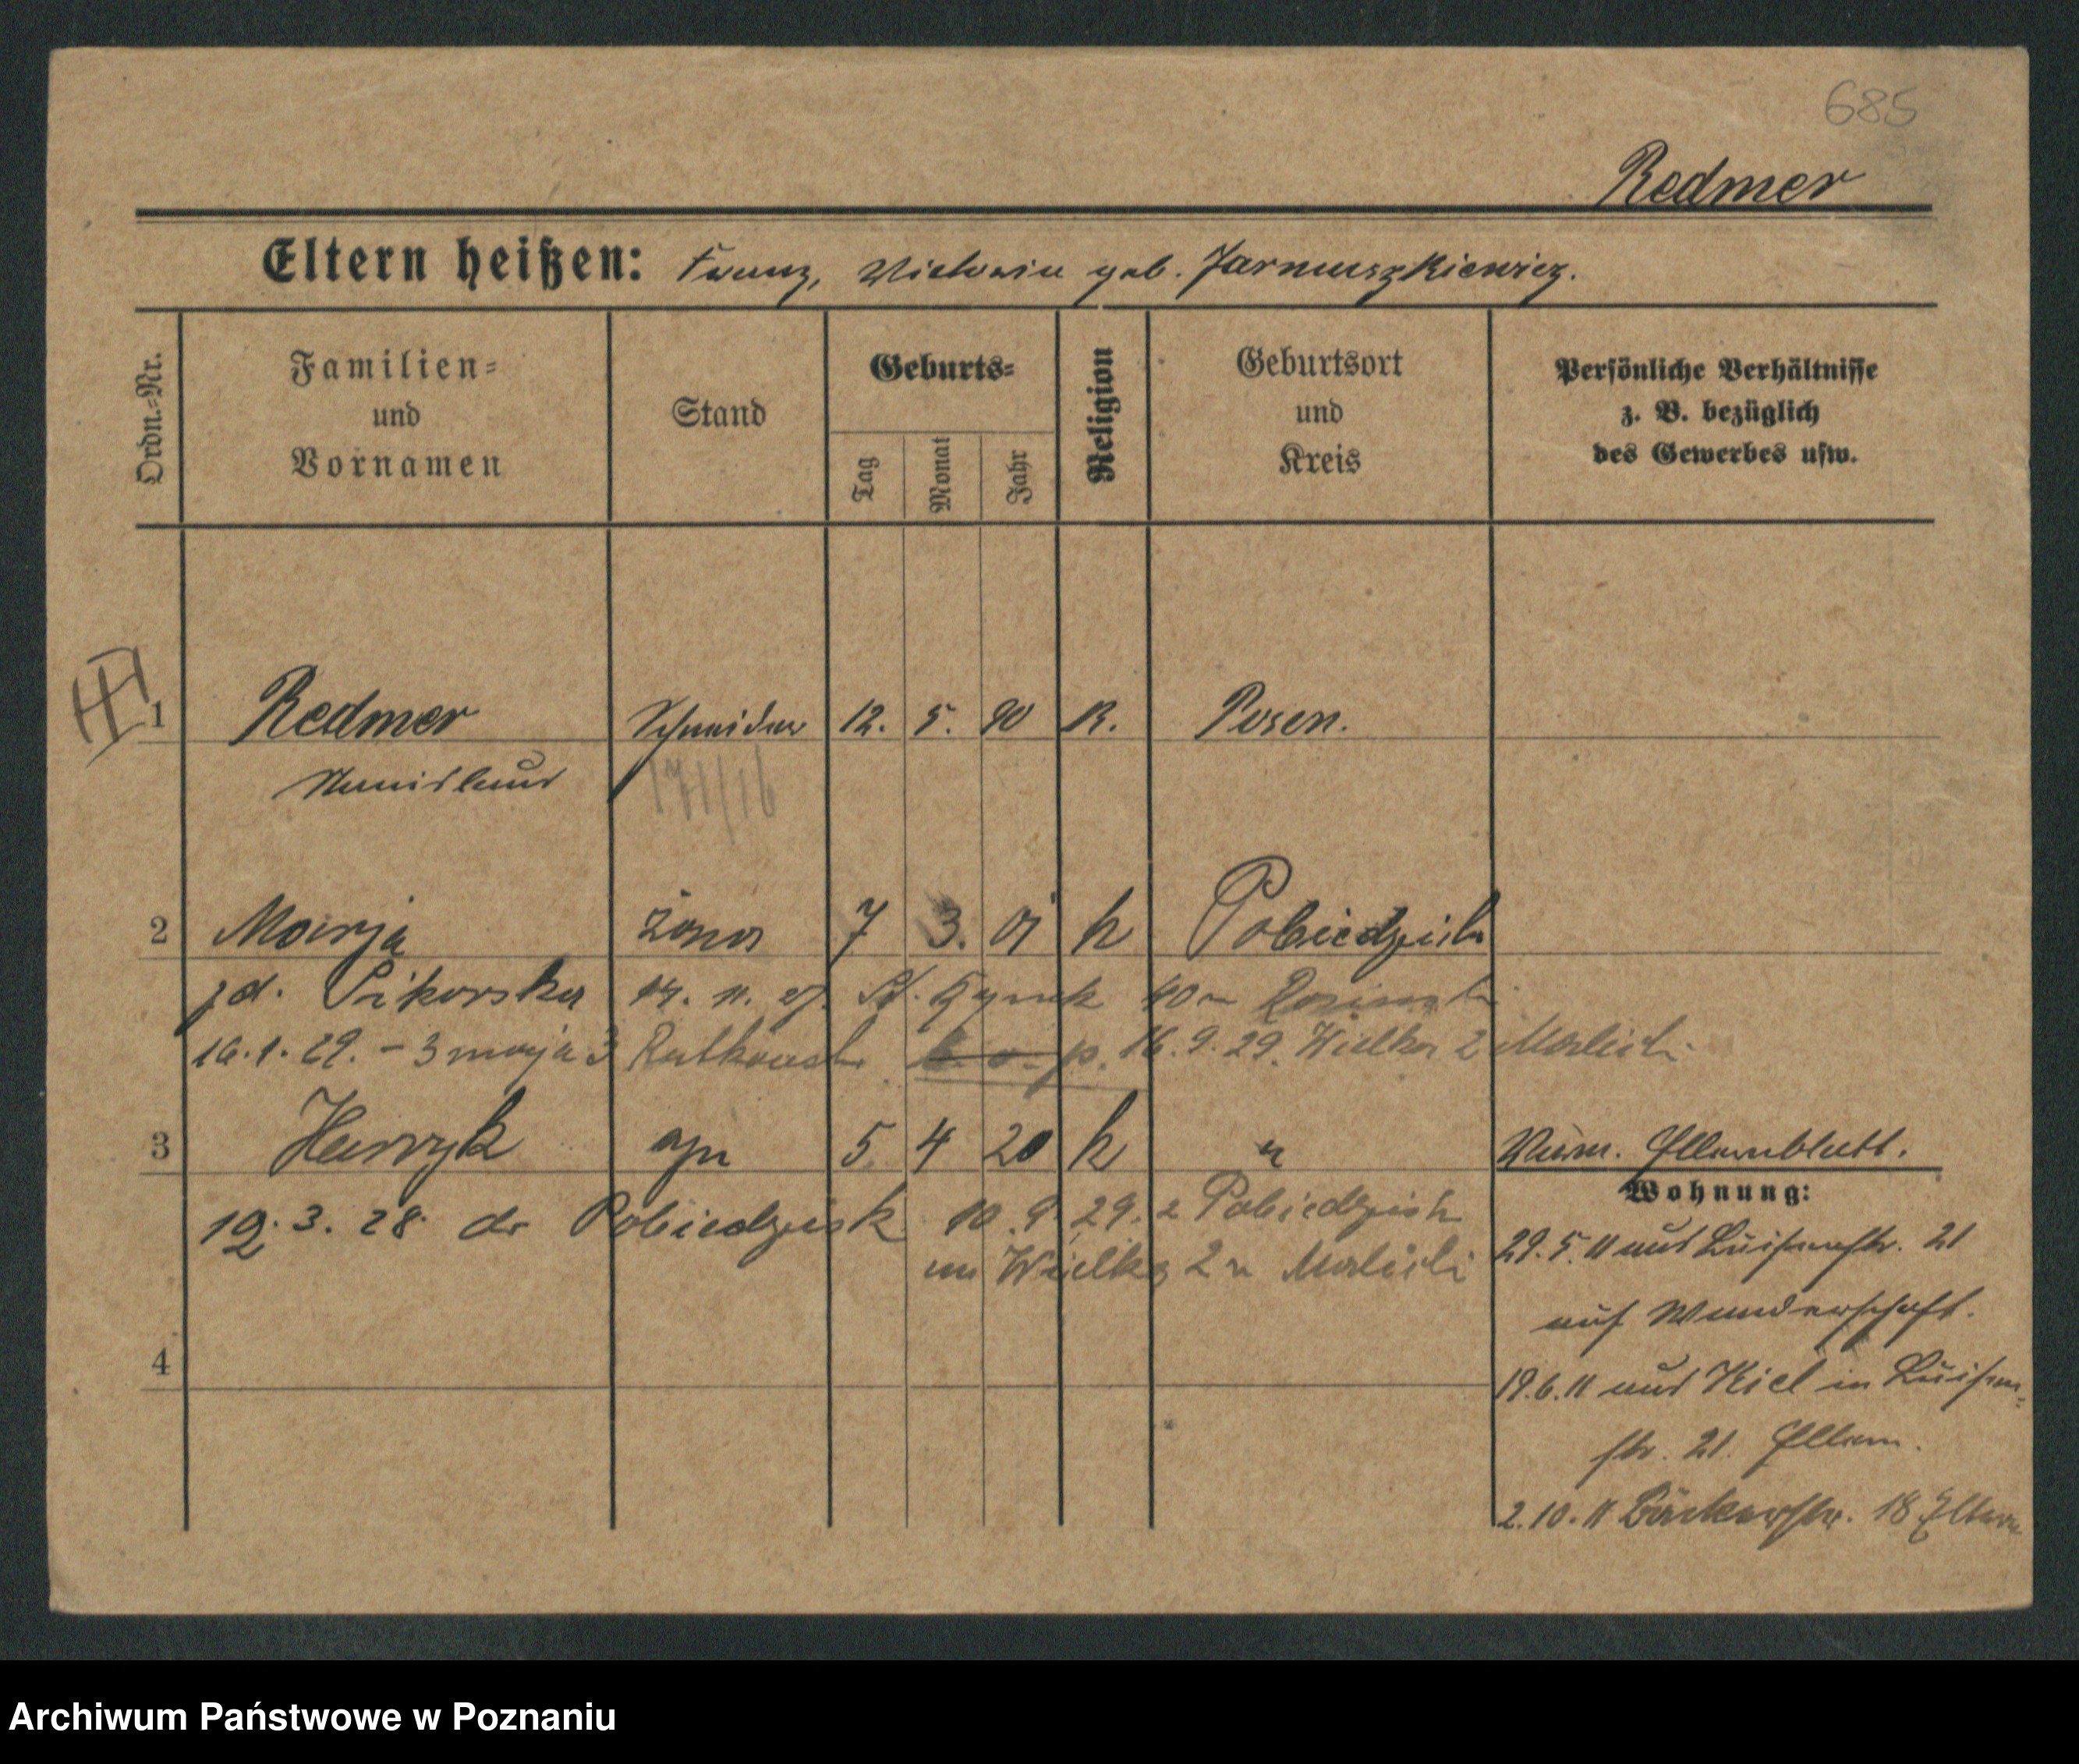 685
Redmer
Eltern heißen: Franz, Victoria geb. Jarmuszkiewicz.
Ordn.-Nr.
Familien- und Vornamen
Stand
Geburts-
Tag
Monat
Jahr
Religion
Geburtsort und Kreis
Persönliche Verhältnisse z. B. bezüglich des Gewerbes usw.
1 Redmer Schneider 12. 5. 90 K. Posen.
Stanislaus
171/16
2 Marja żona 7 3. 01 k Pobiedziska
zd. Sikorska 14. 11. 27. St. Rynek 40
16.1.29. – 3 maja 3 Rutkowski 16.9.29. Wielka 2 Malicki
3 Henryk syn 5 4 20 k "
Elternblatt.
19.3.28 do Pobiedzisk 10.9.29. z Pobiedzisk
Wielka 2 u Malicki
Wohnung:
29.5.11 aus Luisenstr. 21
auf Wanderschaft.
19.6.11 aus Kiel in Luisen-
str. 21. Eltern.
4
2.10.11 Bäckerstr. 18 Eltern
Archiwum Państwowe w Poznaniu